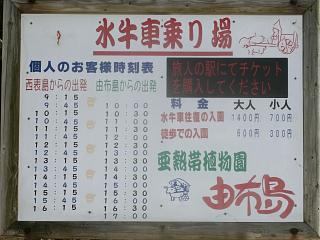 水牛車乗り場
個人のお客様時刻表
西表島からの出発 由布島からの出発
9:15
9:45 10:00
10:15 10:30
10:45 11:00
11:15 11:30
11:45 12:00
12:15 12:30
12:45 13:00
13:15 13:30
13:45 14:00
14:15 14:30
14:45 15:00
15:15 15:30
15:45 16:00
16:15 16:30
17:00
旅人の駅にてチケット
を購入してください
料金 大人 小人
水牛車往復の入園 1400円 700円
徒歩での入園 600円 300円
亜熱帯植物園
由布島